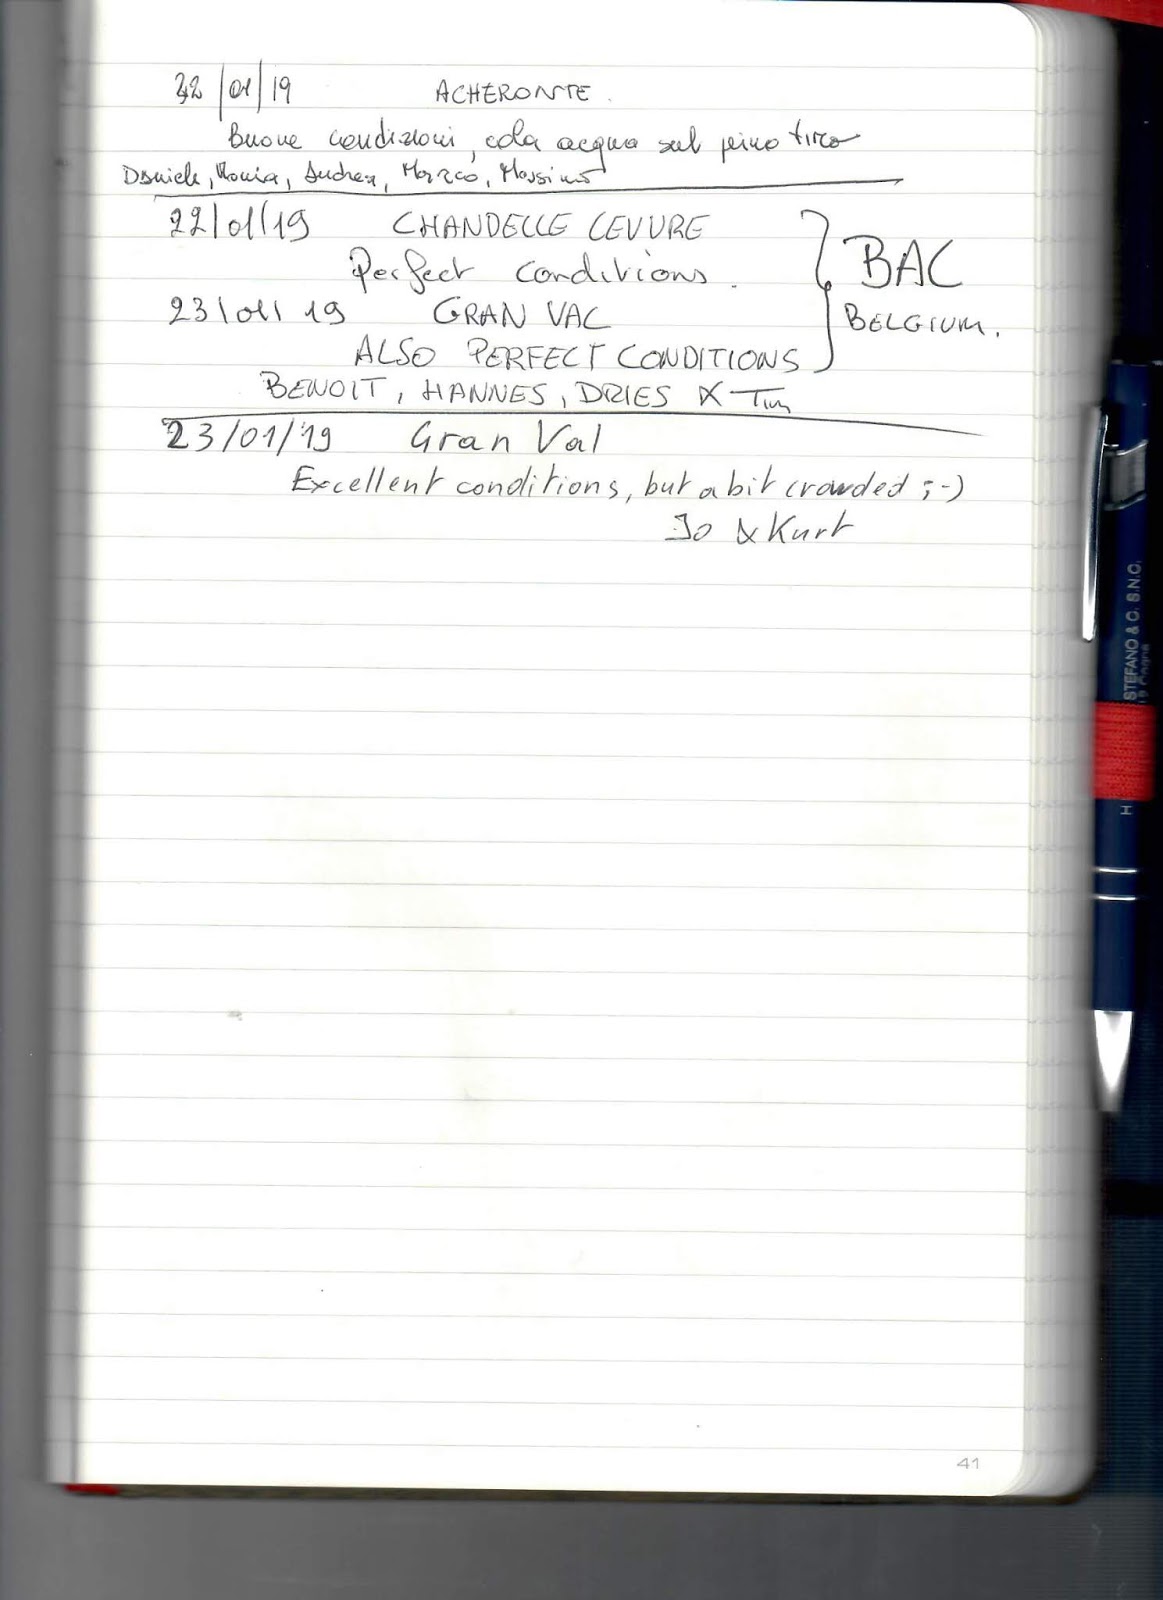 22/01/19 ACHERONTE.
Buone condizioni, cola acqua sul primo tiro
Daniele, Andrea, Marco, Massimo
22/01/19 CHANDELLE LEVURE
Perfect conditions.
23/01/19 GRAN VAL
ALSO PERFECT CONDITIONS
BAC
BELGIUM.
BENOIT, HANNES, DRIES & Tim
23/01/'19 Gran Val
Excellent conditions, but a bit crowded ;-)
Jo & Kurt
STEFANO & C. S.N.C.
H
41